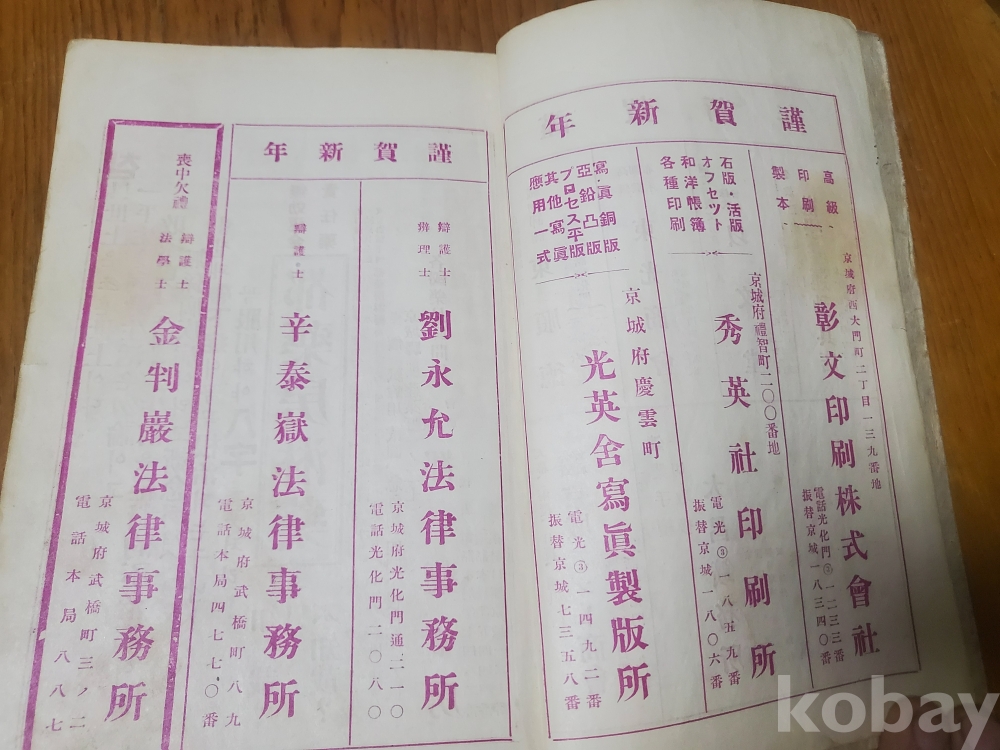 謹賀新年
高級
印刷
製本
京城府西大門町二丁目一三九番地
彰文印刷株式會社
電話光化門③一二三三番
振替京城一八三四〇番
石版・活版
オフセツト
和洋帳簿
各種印刷
京城府禮智町二〇〇番地
秀英社印刷所
電光③一八五九番
振替京城一八〇六番
寫眞銅版
亞鉛凸版
プロセス平版
其他寫眞
應用一式
京城府慶雲町
光英舍寫眞製版所
電光③一四九二番
振替京城七三五八番
謹賀新年
辯護士
辨理士
劉永允法律事務所
京城府光化門通二一〇
電話光化門二〇八〇
辯護士
辛泰嶽法律事務所
京城府武橋町八九
電話本局四七七〇番
喪中欠禮
辯護士
法學士
金判巖法律事務所
京城府武橋町三ノ二
電話本局八八七
kobay